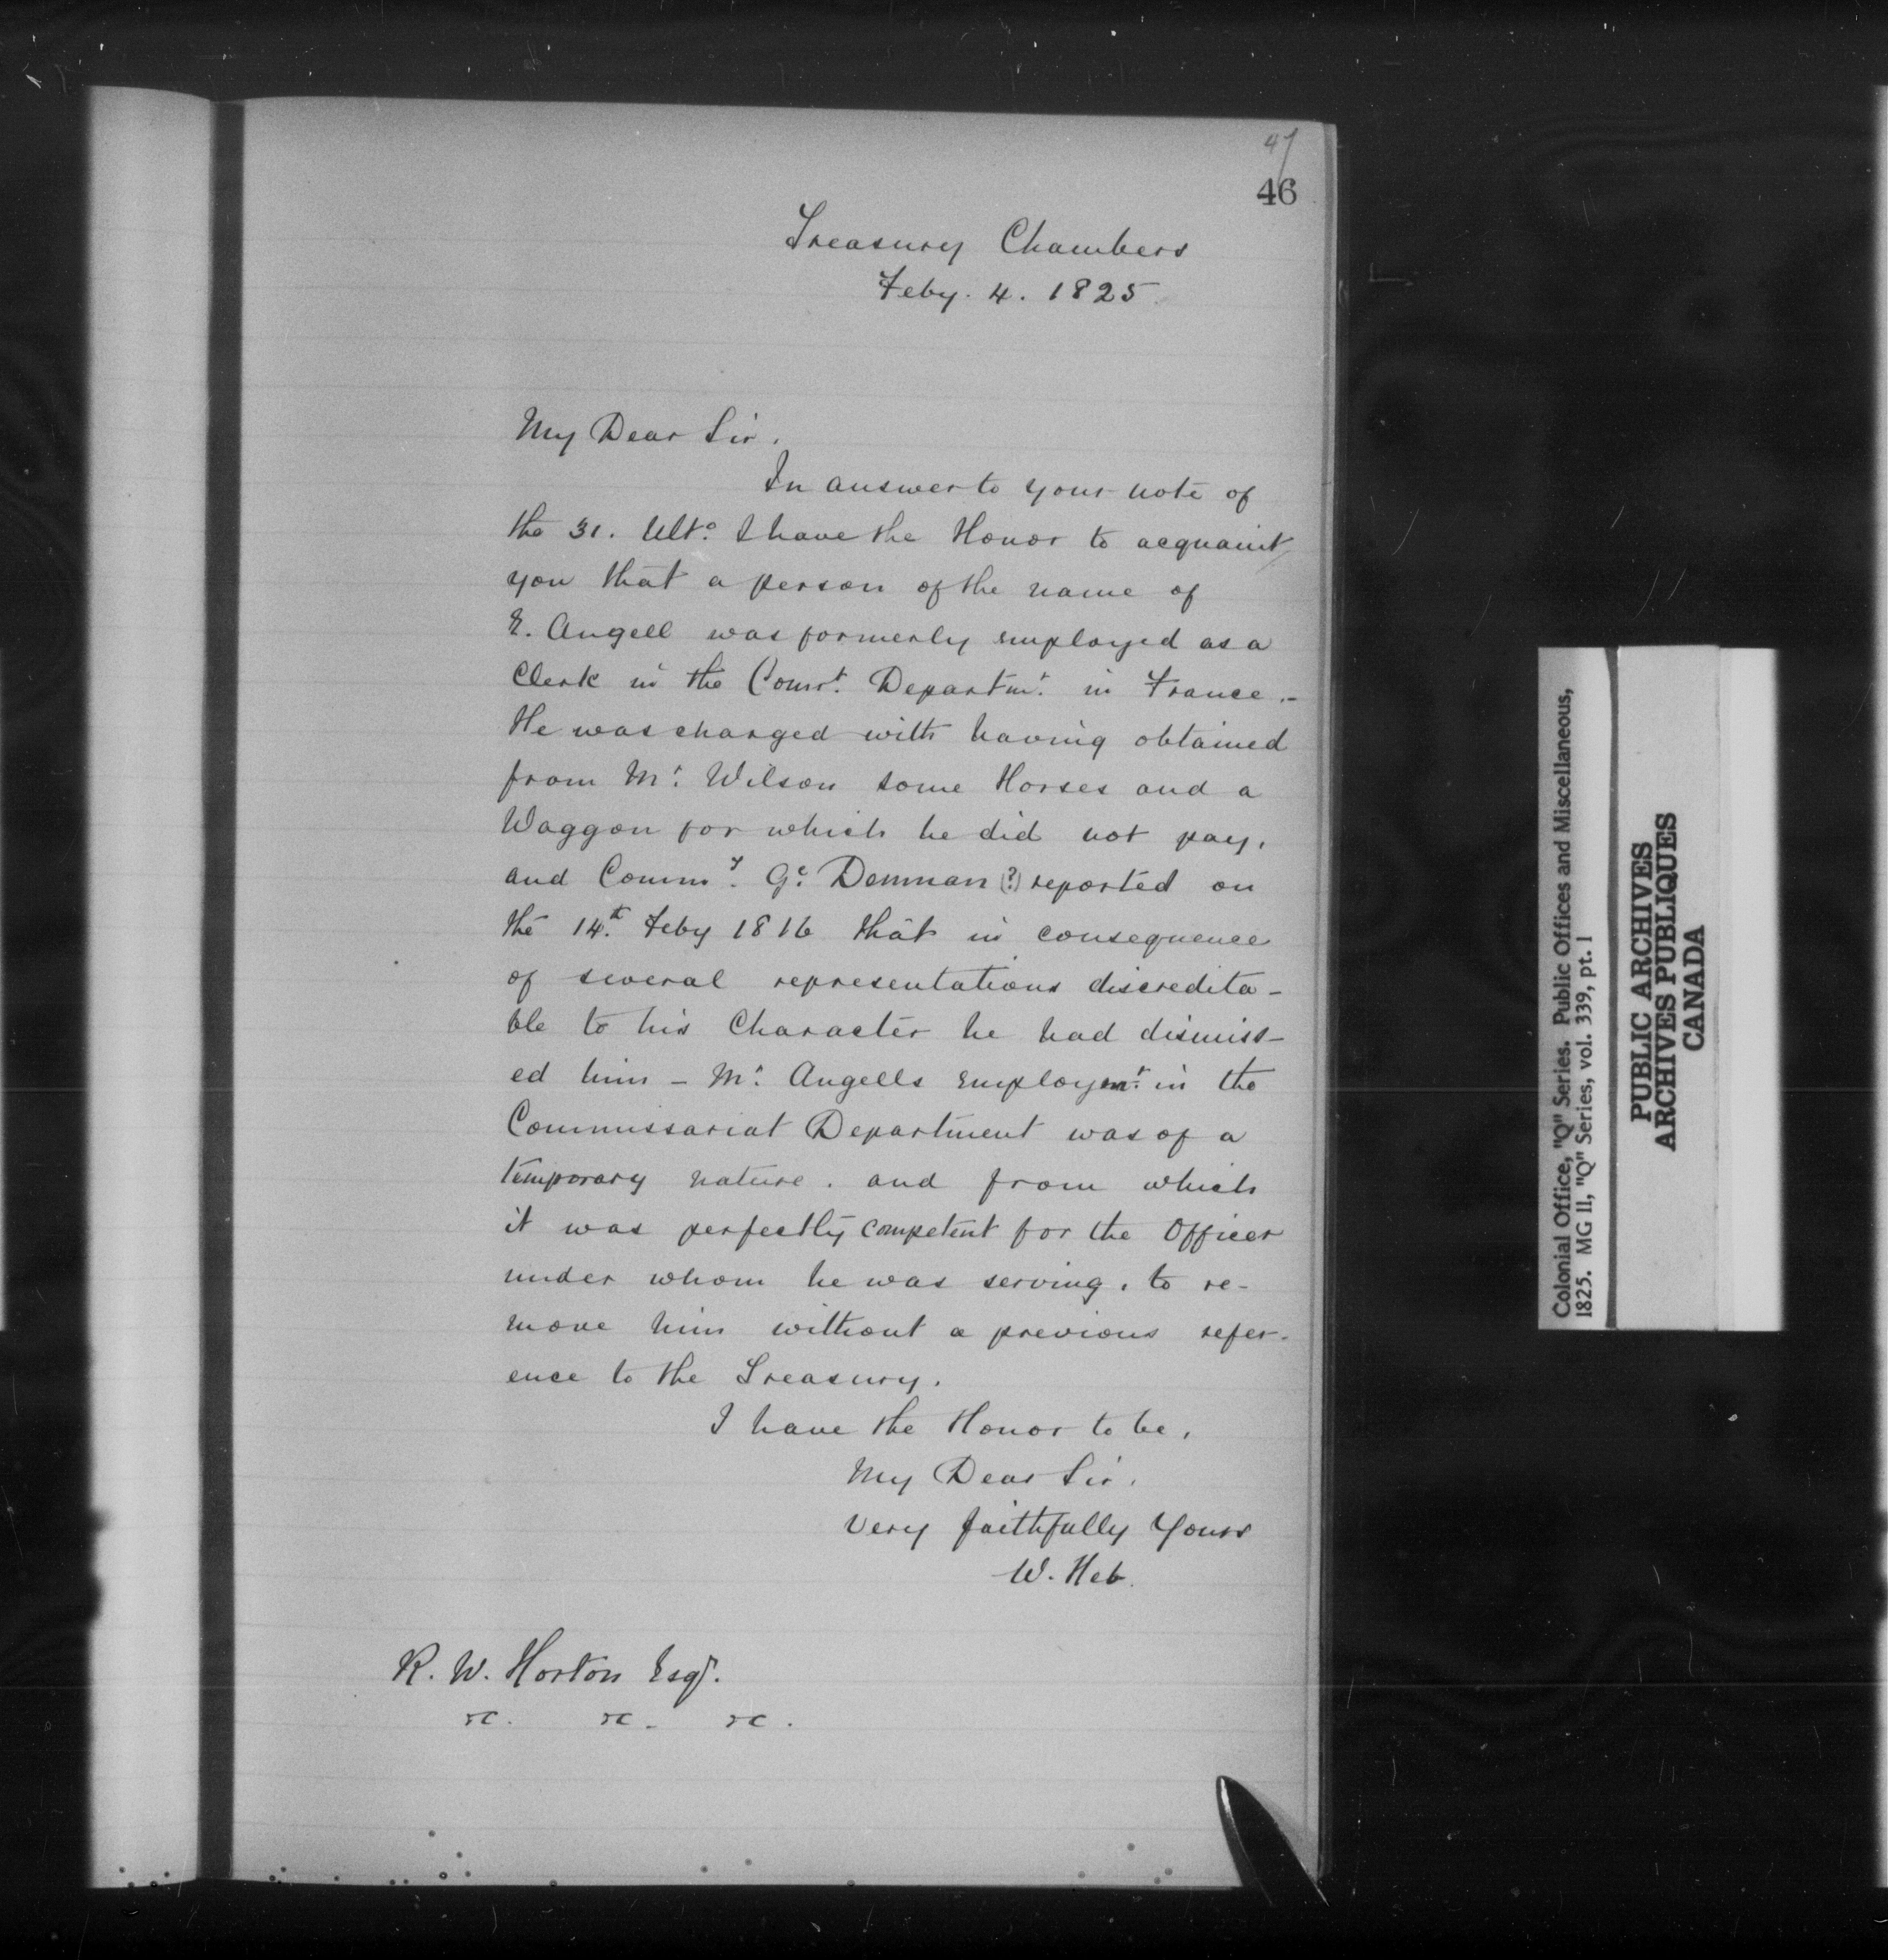 47
46
Treasury Chambers
Feby. 4. 1825.
My Dear Sir,
In answer to your note of
the 31. Ulto. I have the Honor to acquaint
you that a person of the name of
E. Angell was formerly employed as a
Clerk in the Comst. Departmt. in France.-
He was charged with having obtained
from Mr. Wilson some Horses and a
Waggon for which he did not pay,
and Commy. Gl. Denman (?) reported on
the 14th. Feby 1816 that in consequence
of several representations discredita-
ble to his Character he had dismiss-
ed him - Mr. Angells employmt. in the
Commissariat Department was of a
temporary nature. and from which
it was perfectly competent for the Officer
under whom he was serving, to re-
move him without a previous refer-
ence to the Treasury.
I have the Honor to be,
My Dear Sir,
Very faithfully Yours
W. Heb.
R. W. Horton Esqr.
&c. &c. &c.
Colonial Office, "Q" Series. Public Offices and Miscellaneous,
1825. MG 11, "Q" Series, vol. 339, pt. 1
PUBLIC ARCHIVES
ARCHIVES PUBLIQUES
CANADA